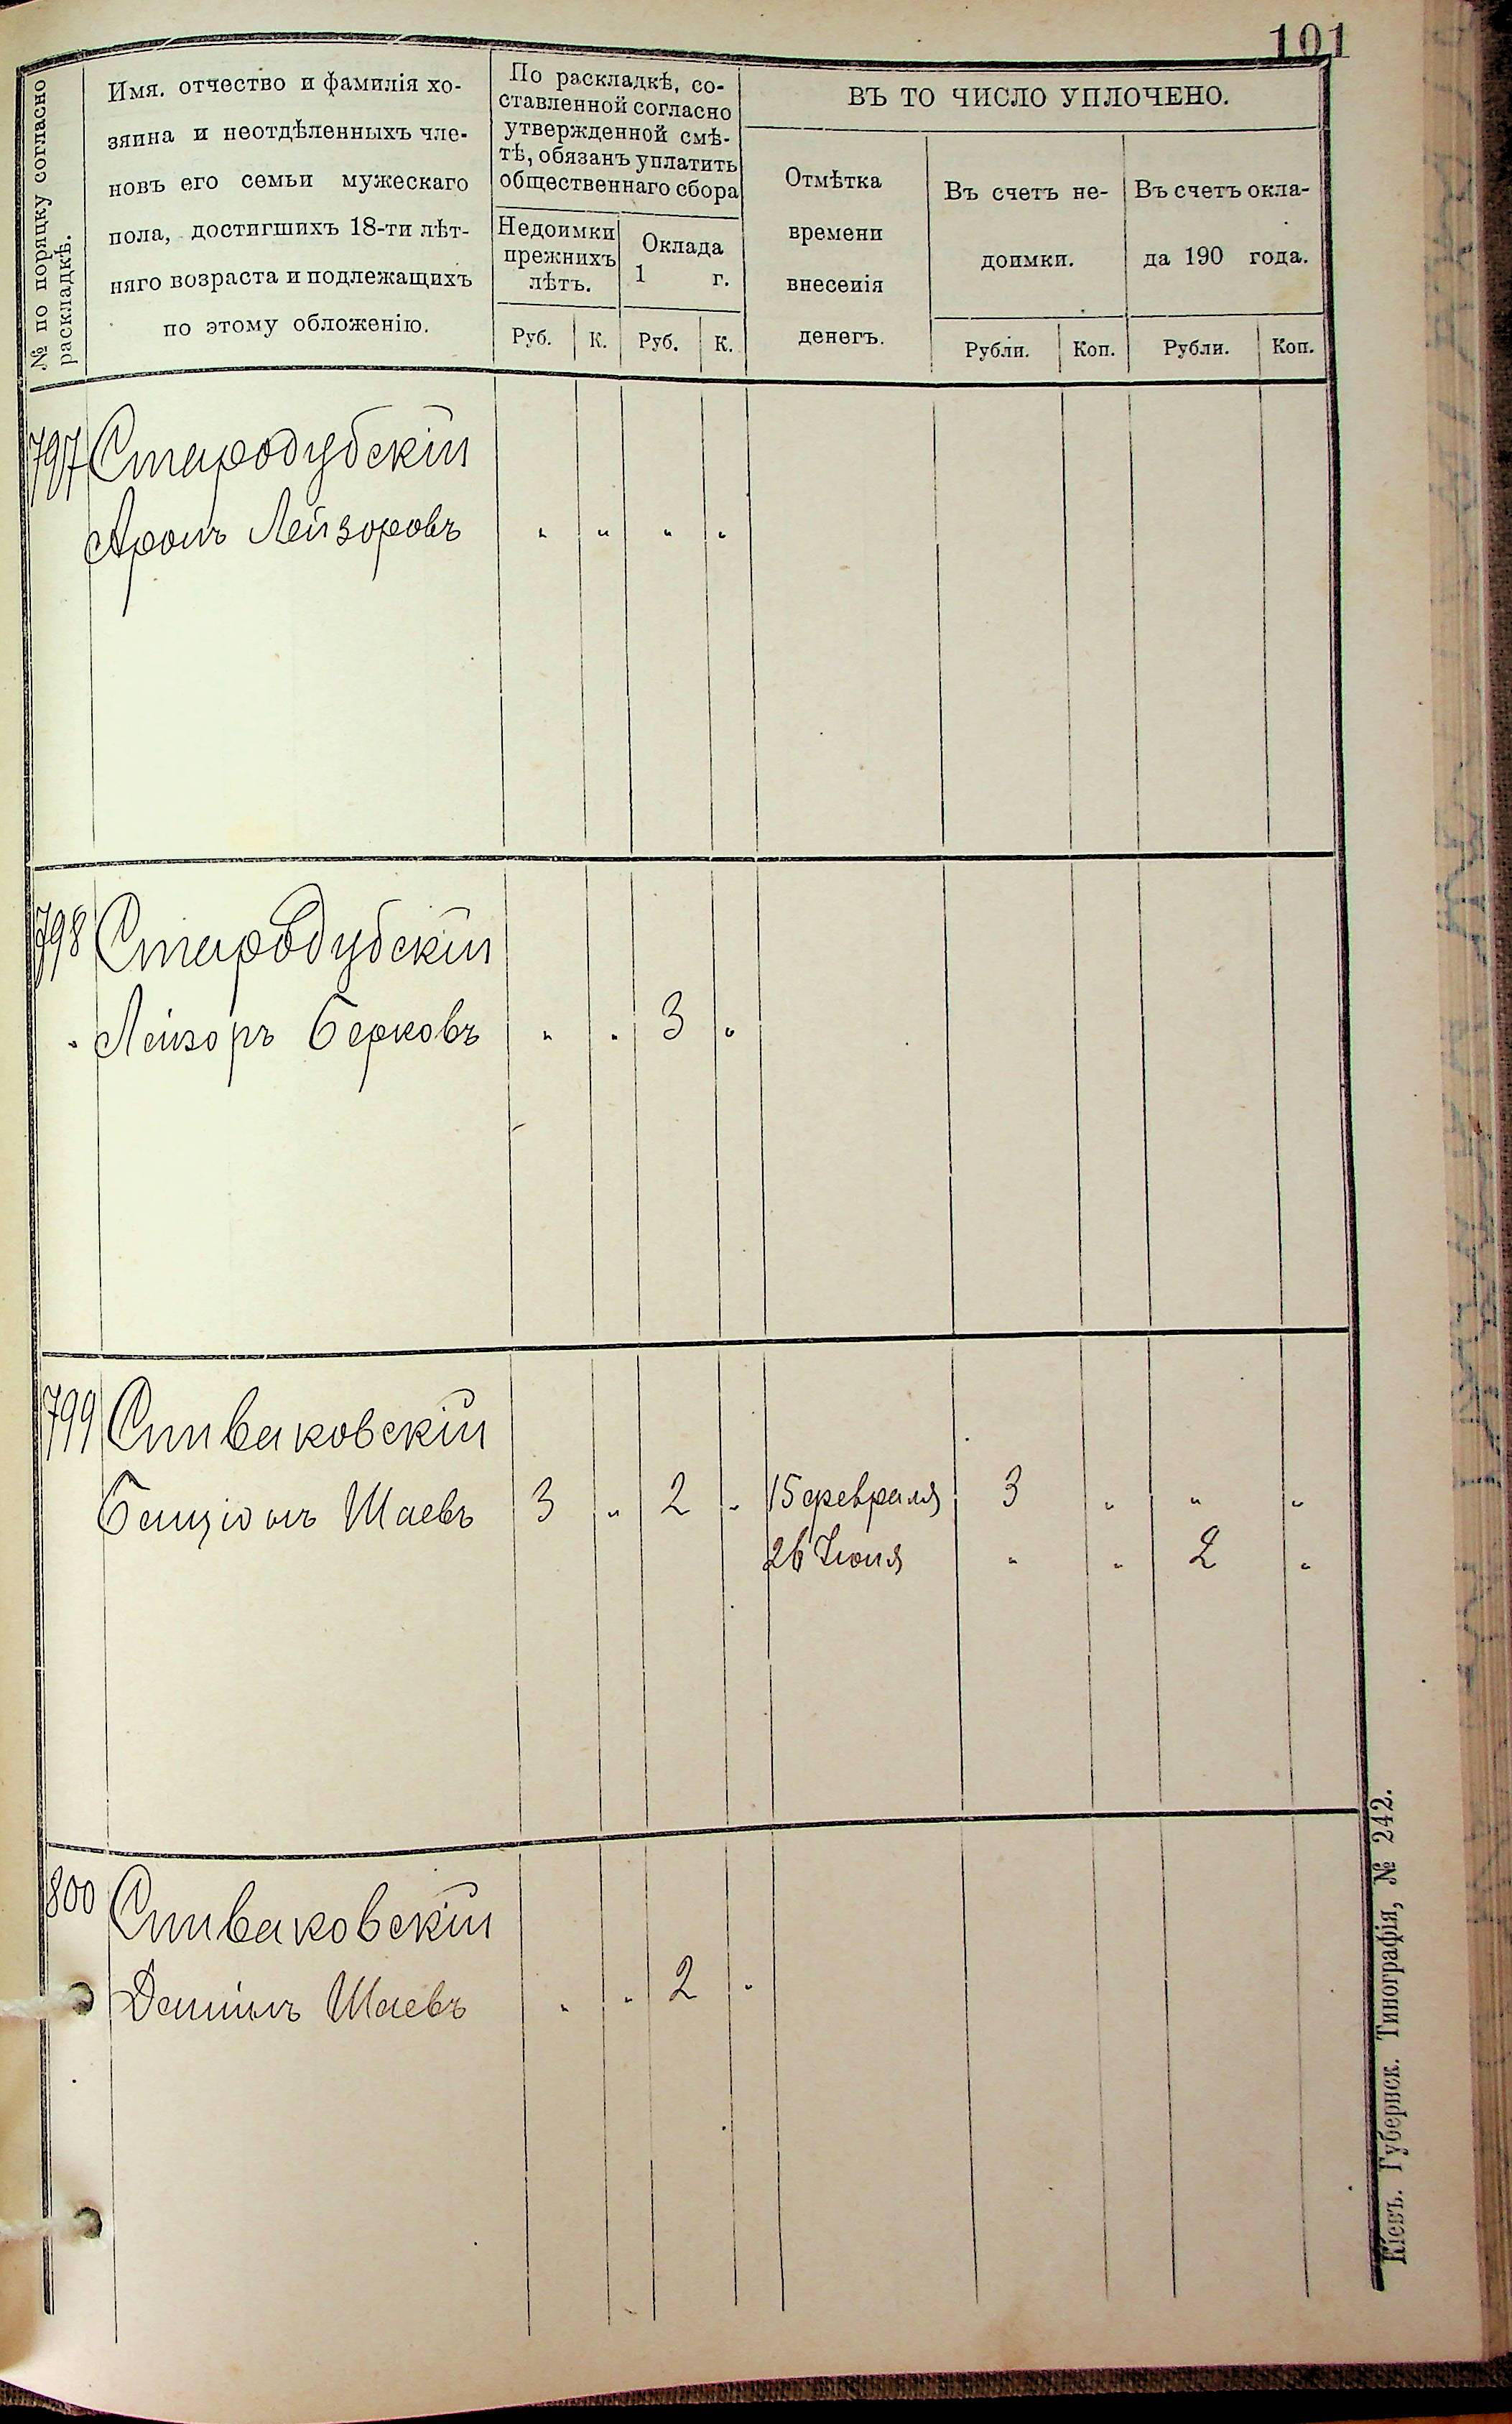 101
№ по порядку согласно
раскладкѣ.
Имя. отчество и фамилія хо-
зяина и неотдѣленныхъ чле-
новъ его семьи мужескаго
пола, достигшихъ 18-ти лѣт-
няго возраста и подлежащихъ
по этому обложенію.
По раскладкѣ, со-
ставленной согласно
утвержденной смѣ-
тѣ, обязанъ уплатить
общественнаго сбора
Недоимки
прежнихъ
лѣтъ.
Оклада
1 г.
Руб. К. Руб. К.
ВЪ ТО ЧИСЛО УПЛОЧЕНО.
Отмѣтка
времени
внесенія
денегъ.
Въ счетъ не-
доимки.
Въ счетъ окла-
да 190 года.
Рубли. Коп. Рубли. Коп.
797 Стародубскій
Аронъ Лейзоровъ " " " "
798 Стародубскій
Лейзоръ Берковъ " " 3 "
799 Спиваковскій
Бенціонъ Шаевъ 3 " 2 " 15 февраля 3 " " "
26 Іюня " " 2 "
800 Спиваковскій
Даніилъ Шаевъ " " 2 "
Кіевъ. Губернск. Типографія, № 242.